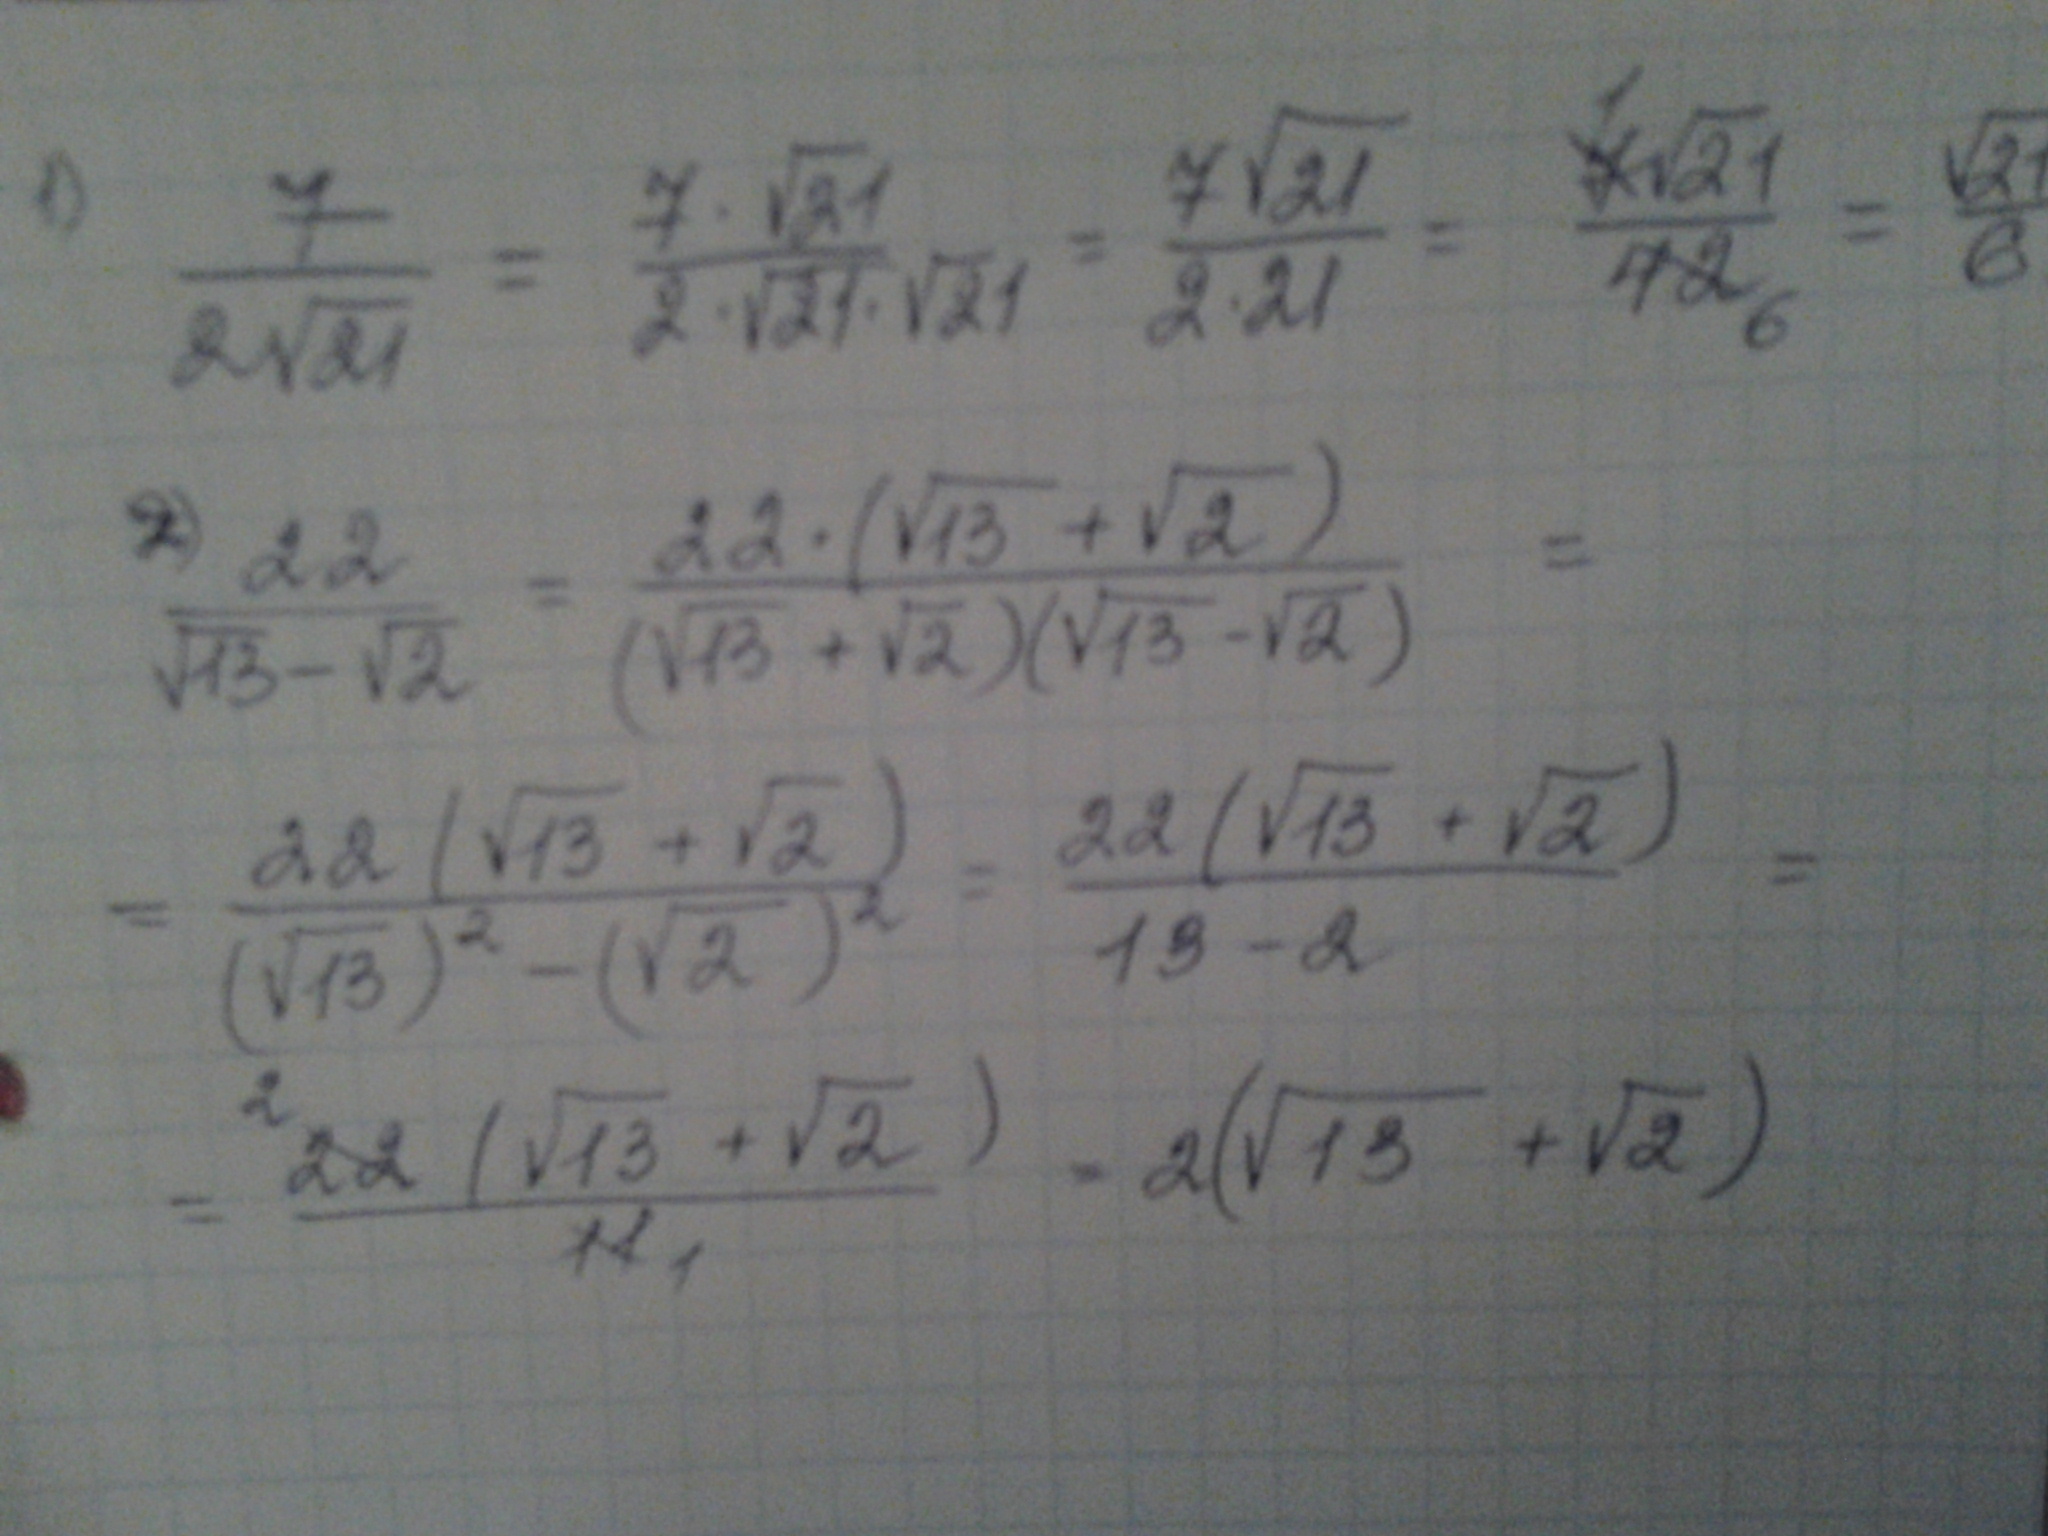 1) 7/(2√21) = (7·√21)/(2·√21·√21) = (7√21)/(2·21) = (7√21)/42 = √21/6
1
6
2) 22/(√13-√2) = (22·(√13+√2))/((√13+√2)(√13-√2)) =
= (22(√13+√2))/((√13)²-(√2)²) = (22(√13+√2))/(13-2) =
2
= (22(√13+√2))/11 = 2(√13+√2)
1